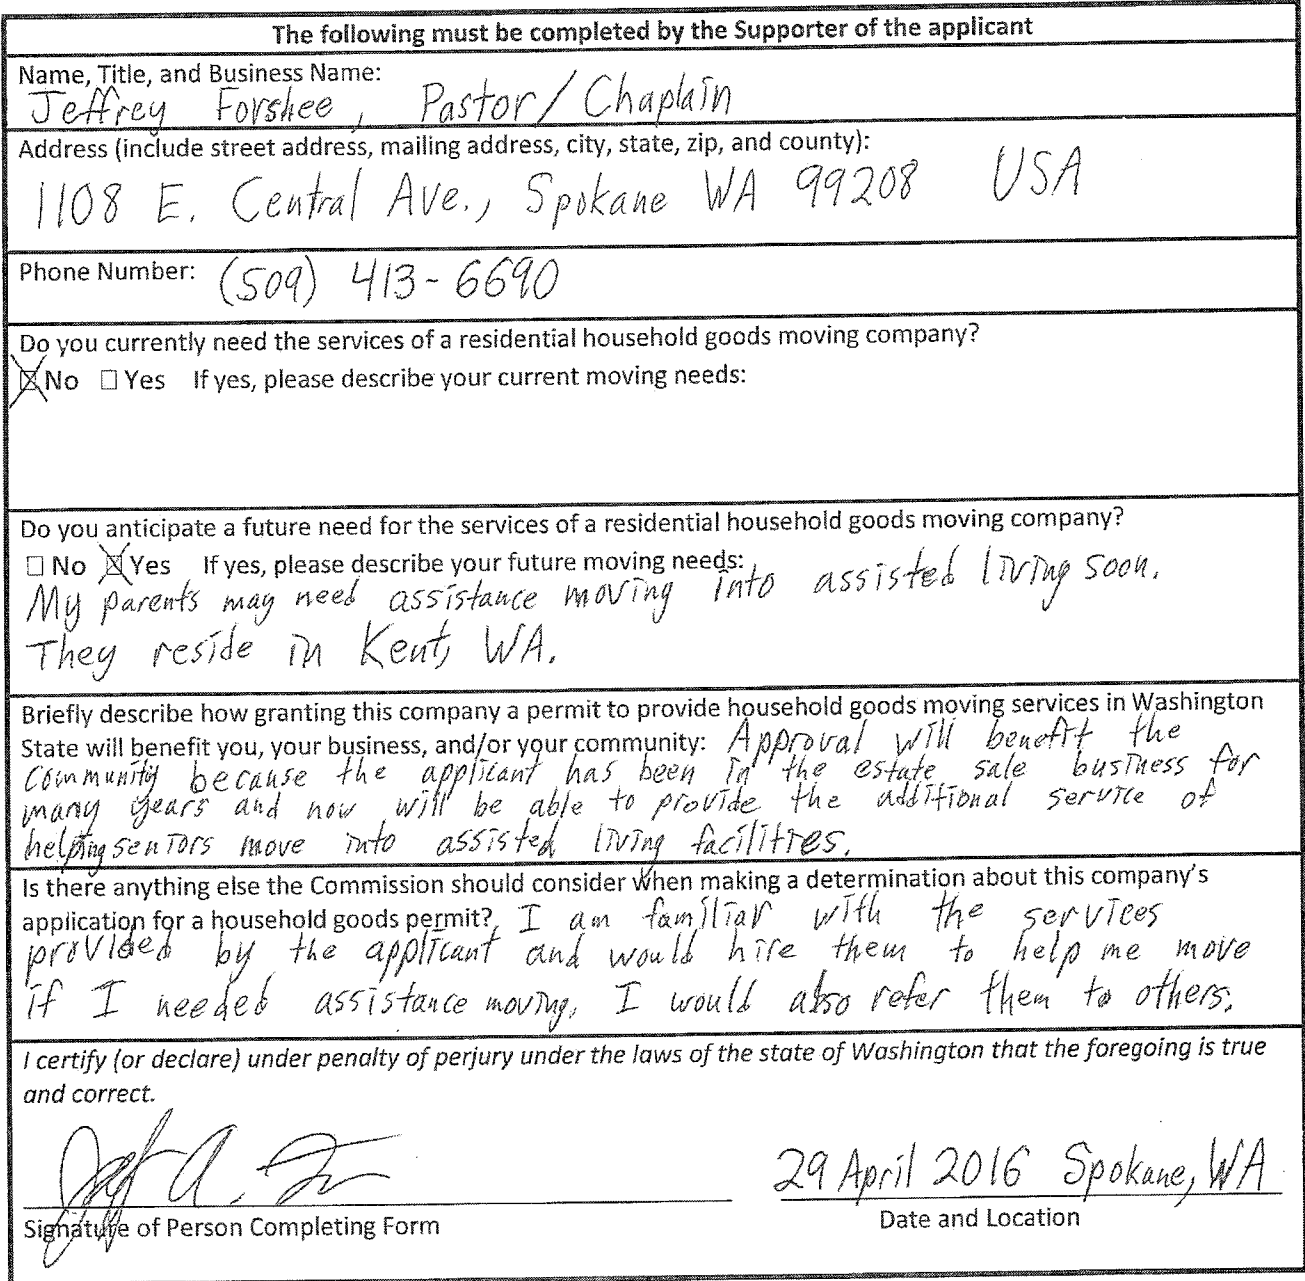 The following must be completed by the Supporter of the applicant
Name, Title, and Business Name:
Jeffrey Forshee, Pastor/Chaplain
Address (include street address, mailing address, city, state, zip, and county):
1108 E. Central Ave., Spokane WA 99208 USA
Phone Number: (509) 413-6690
Do you currently need the services of a residential household goods moving company?
☒ No ☐ Yes If yes, please describe your current moving needs:
Do you anticipate a future need for the services of a residential household goods moving company?
☐ No ☒ Yes If yes, please describe your future moving needs:
My parents may need assistance moving into assisted living soon.
They reside in Kent, WA.
Briefly describe how granting this company a permit to provide household goods moving services in Washington
State will benefit you, your business, and/or your community: Approval will benefit the
community because the applicant has been in the estate sale business for
many years and now will be able to provide the additional service of
helping seniors move into assisted living facilities.
Is there anything else the Commission should consider when making a determination about this company's
application for a household goods permit? I am familiar with the services
provided by the applicant and would hire them to help me move
if I needed assistance moving. I would also refer them to others.
I certify (or declare) under penalty of perjury under the laws of the state of Washington that the foregoing is true
and correct.
29 April 2016 Spokane, WA
Signature of Person Completing Form
Date and Location